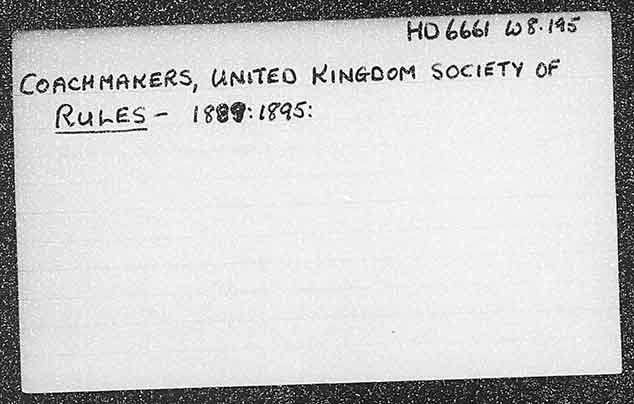 HD 6661 W8.195
COACHMAKERS, UNITED KINGDOM SOCIETY OF
RULES - 1889: 1895: